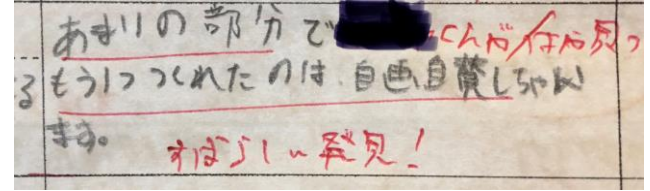 あまりの部分で
もう1つつくれたのは、自画自賛しちゃい
ます。
すばらしい発見！